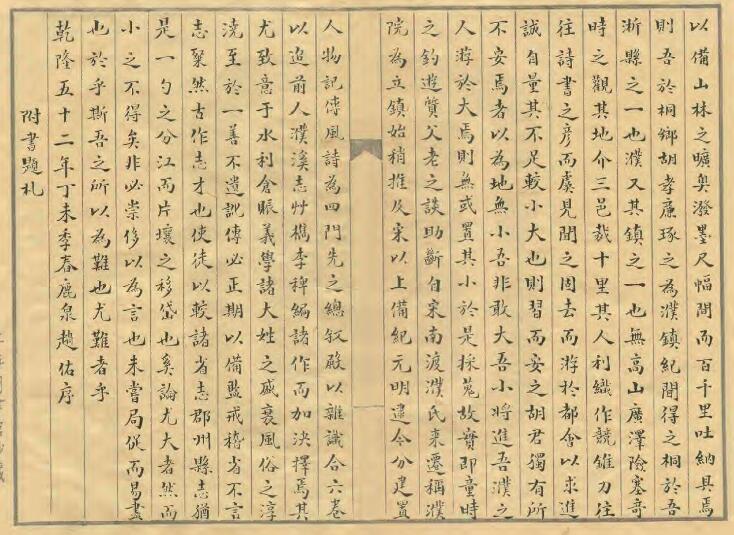 以備山林之曠奥潑墨尺幅間而百千里吐納具焉
則吾於桐鄉胡孝廉琢之為濮鎮紀間得之桐於吾
浙縣之一也濮又其鎮之一也無高山廣澤險塞奇
時之觀其地介三邑裁十里其人利織作競錐刀注
往詩書之彦而虞見聞之固去而游於都會以求進
誠自量其不足較小大也則習而安之胡君獨有所
不安焉者以為地無小吾非敢大吾小將進吾濮之
人游於大焉則無或置其小於是採蒐故實即童時
之釣遊質父老之談助斷自宋南渡濮氏來遷稱濮
院為立鎮始稍推及宋以上備紀元明建令分建置
人物記傳風詩為四門先之總叙殿以雜識合六卷
以追前人濮溪志艸檇李稗編諸作而加決擇焉其
尤致意于水利倉賑義學諸大姓之盛衰風俗之淳
澆至於一善不遺訓傳必正期以備監戒稽省不言
志粲然古作志才也使徒以較諸省志郡州縣志猶
是一勺之分江而片壤之移岱也奚論尤大者然而
小之不得矣非必崇侈以為言也未嘗局促而易盡
也於乎斯吾之所以為難也尤難者乎
乾隆五十二年丁未季春鹿泉趙佑序
附書題札